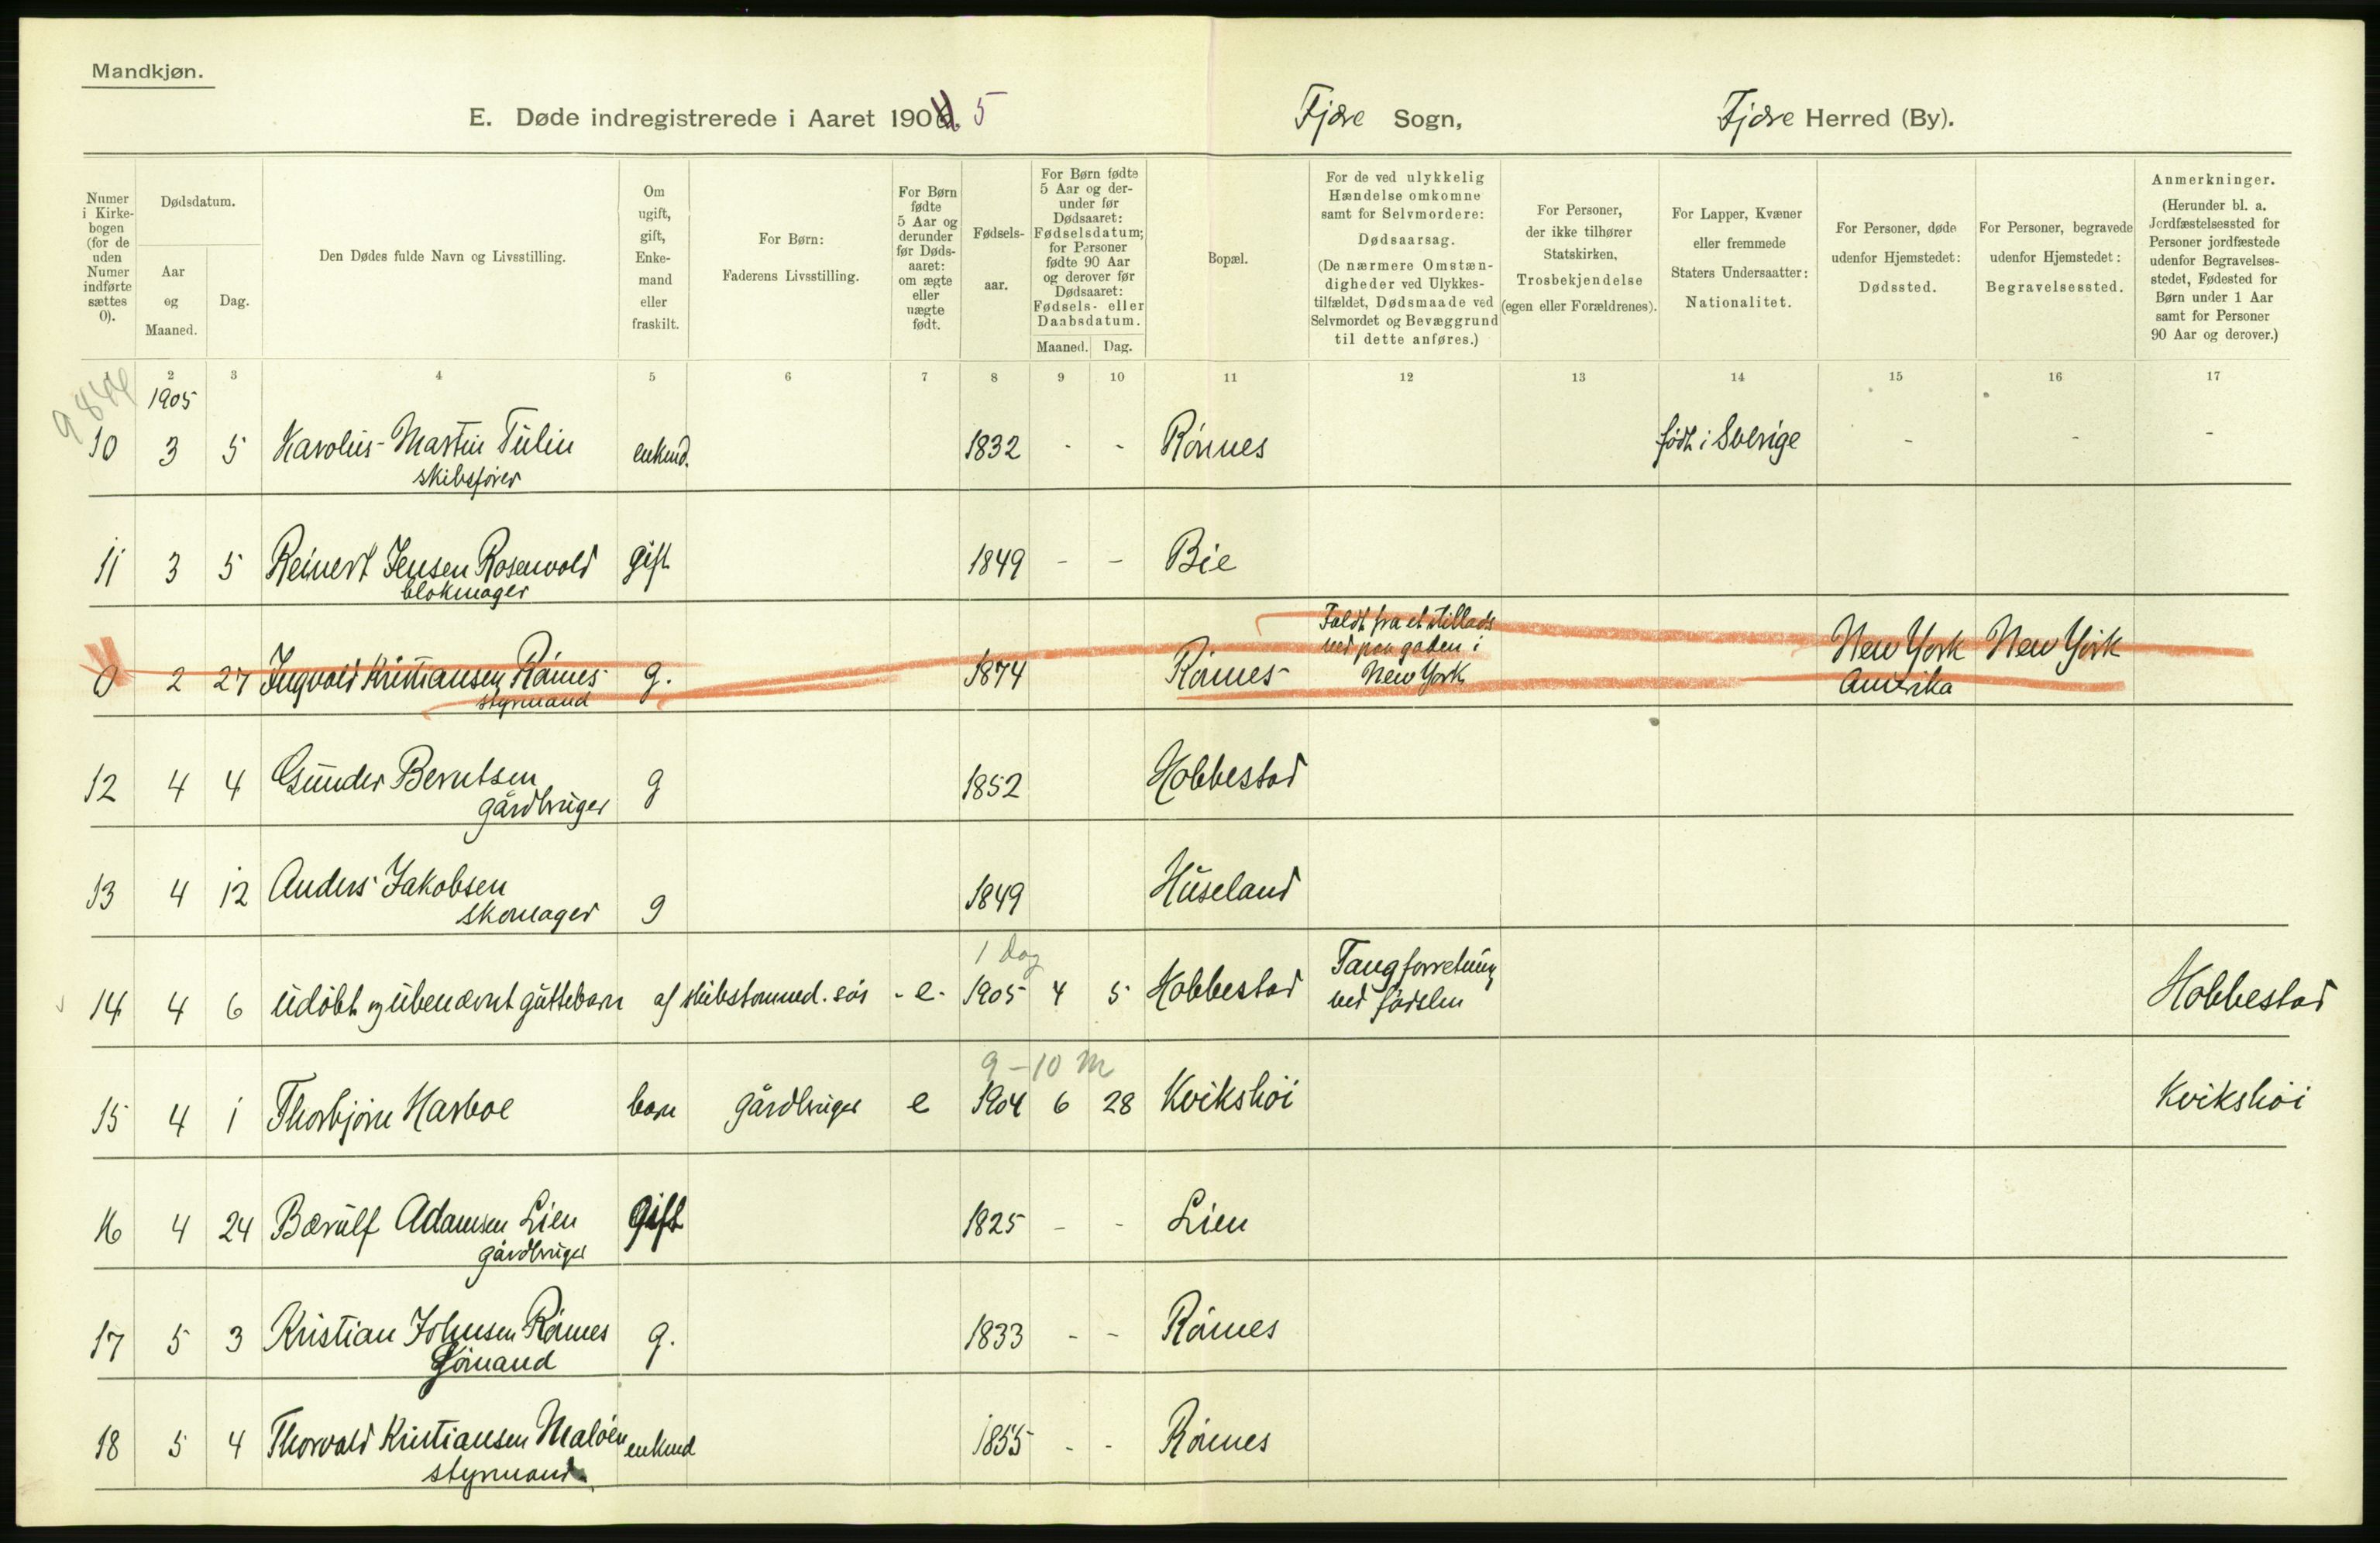 Mandkjøn.
E. Døde indregistrerede i Aaret 1905
Fjære Sogn, Fjære Herred (By).
Numer i Kirkebogen (for de uden Numer indførte sættes 0).
Dødsdatum.
Aar og Maaned.
Dag.
Den Dødes fulde Navn og Livsstilling.
Om ugift, gift, Enkemand eller fraskilt.
For Børn: Faderens Livsstilling.
For Børn fødte 5 Aar og derunder før Dødsaaret: om ægte eller uægte født.
Fødselsaar.
For Børn fødte 5 Aar og derunder før Dødsaaret: Fødselsdatum; for Personer fødte 90 Aar og derover før Dødsaaret: Fødsels- eller Daabsdatum.
Maaned. Dag.
Bopæl.
For de ved ulykkelig Hændelse omkomne samt for Selvmordere: Dødsaarsag. (De nærmere Omstændigheder ved Ulykkestilfældet, Dødsmaade ved Selvmordet og Bevæggrund til dette anføres.)
For Personer, der ikke tilhører Statskirken, Trosbekjendelse (egen eller Forældrenes).
For Lapper, Kvæner eller fremmede Staters Undersaatter: Nationalitet.
For Personer, døde udenfor Hjemstedet: Dødssted.
For Personer, begravede udenfor Hjemstedet: Begravelsessted.
Anmerkninger. (Herunder bl. a. Jordfæstelsessted for Personer jordfæstede udenfor Begravelsesstedet, Fødested for Børn under 1 Aar samt for Personer 90 Aar og derover.)
2 3 4 5 6 7 8 9 10 11 12 13 14 15 16 17
1905
10 3 5 Karolius Martin Tulin enkmd. 1832 - - Rønnes født i Sverige - - -
skibsfører
11 3 5 Reinert Jensen Rosenvold gift 1849 - - Bie
blokmager
Faldt fra et stillads
0 2 27 Ingvald Kristiansen Rønnes g. 1874 Rønnes ned paa gaden i New York New York
styrmand New York Amerika
12 4 4 Gunder Berntsen g 1852 Hobbestad
gårdbruger
13 4 12 Anders Jakobsen g 1849 Huseland
skomager
1 dag
14 4 6 udøbt og ubenævnt guttebarn af skibstømmed. søs - e - 1905 4 5 Hobbestad Tangforretning Hobbestad
ved fødslen
9-10 m
15 4 1 Thorbjørn Harboe barn gårdbruger e 1904 6 28 Kvikshøi Kvikshøi
16 4 24 Børulf Adamsen Lien gift 1825 - - Lien
gårdbruger
17 5 3 Kristian Johnsen Rønnes g. 1833 - - Rønnes
Sømand
18 5 4 Thorvald Kristiansen Maløen enkmd 1855 - - Rønnes
styrmand.